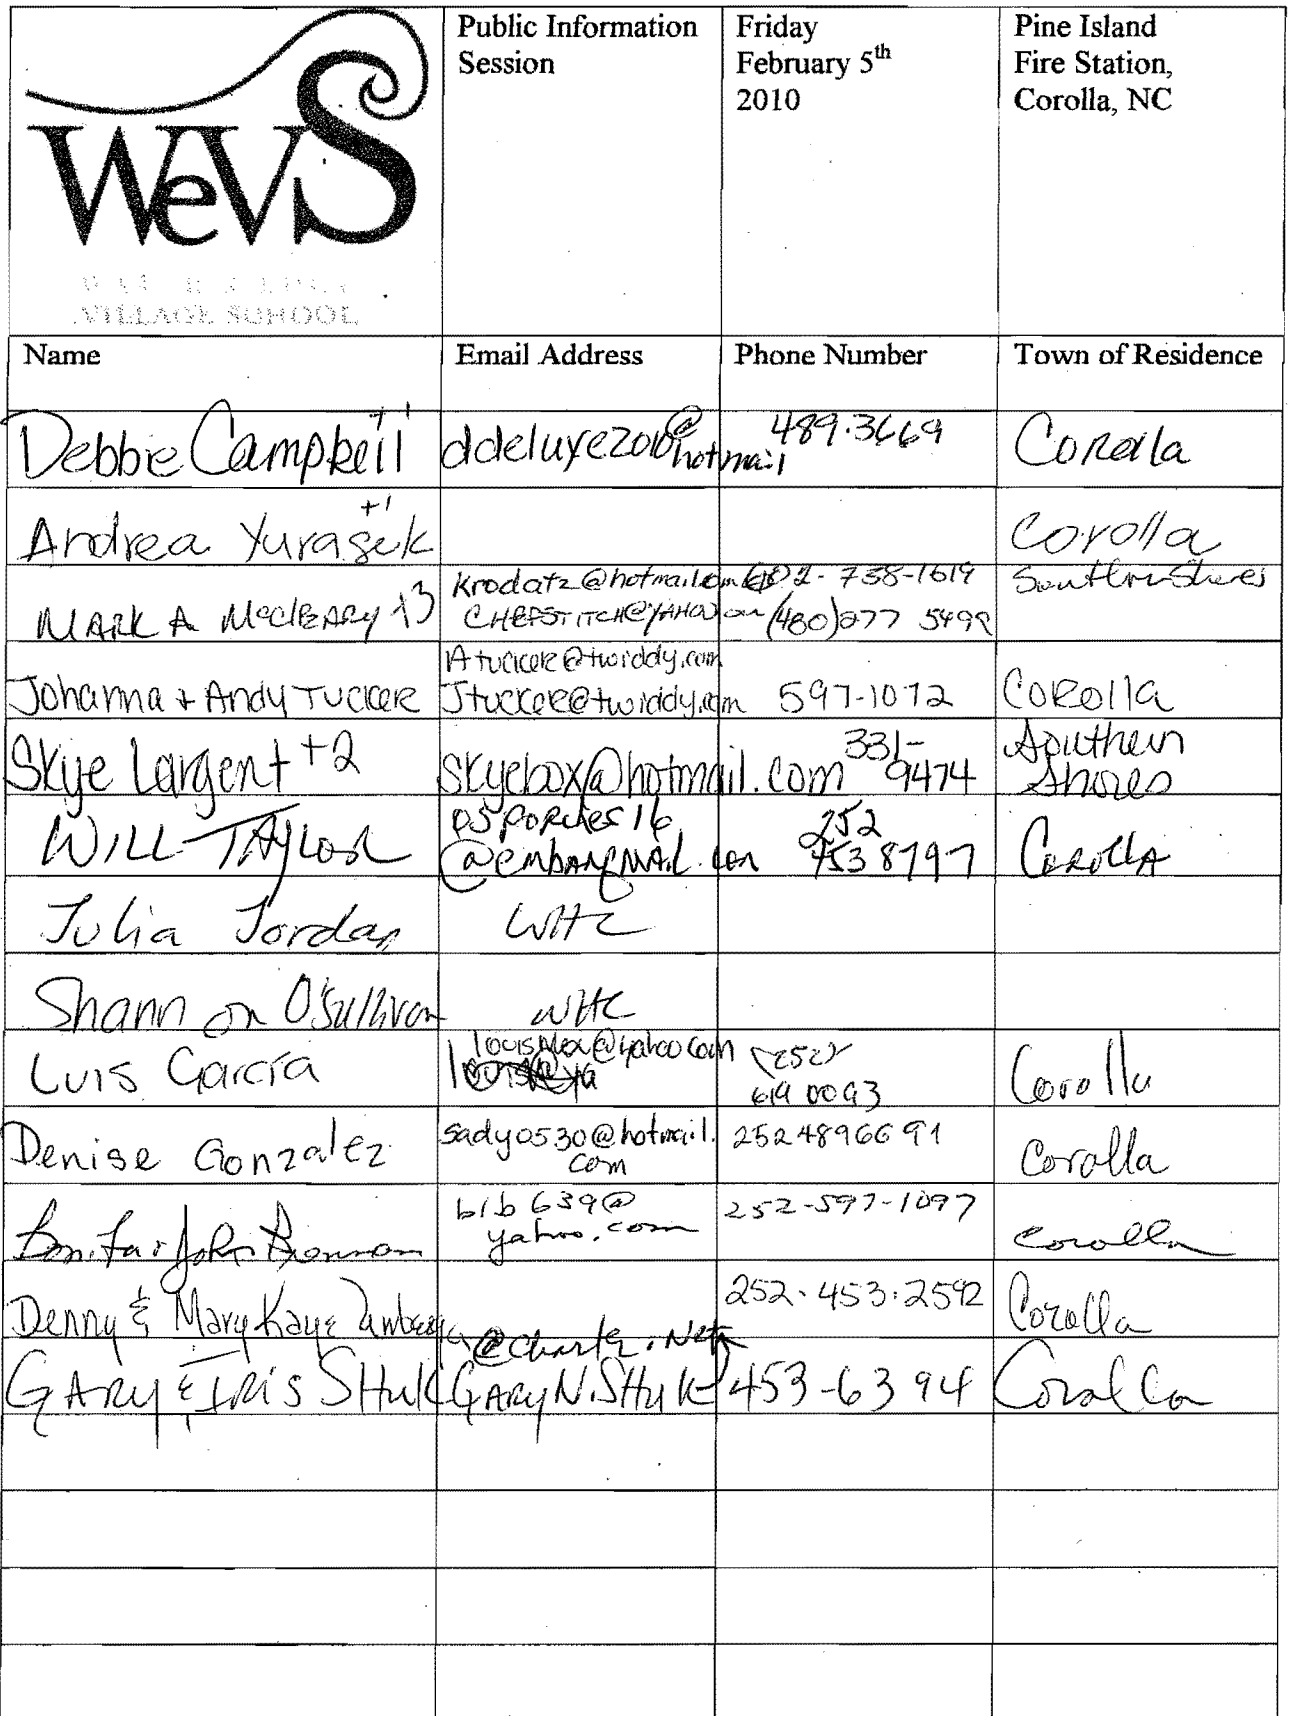 WeVS
VILLAGE SCHOOL
Public Information
Session
Friday
February 5th
2010
Pine Island
Fire Station,
Corolla, NC
Name
Email Address
Phone Number
Town of Residence
Debbie Campbell +1
ddeluxe2010@
hotmail
489.3669
Corolla
Andrea Yurasek +1
Corolla
Mark A McCleary +3
Krodatz@hotmail.com
CHEFSTITCH@YAHOO.com
602-738-1619
(480)277 5499
Southern Shores
Johanna + Andy Tucker
Atucker@twiddy.com
Jtucker@twiddy.com
597-1072
Corolla
Skye Largent +2
skyebox@hotmail.com
331-
9474
Southern
Shores
WILL TAYLOR
05porches16
@embarqmail.com
252
453 8797
Corolla
Julia Jordan
WHC
Shannon O'Sullivan
WHC
Luis Garcia
@yahoo com
(252)
619 0093
Corolla
Denise Gonzalez
sady0530@hotmail.
com
2524896691
Corolla
Bonita + John Brennan
blb639@
yahoo.com
252-597-1097
Corolla
Denny & Mary Kaye
252.453.2592
Corolla
GARY & IRIS SHUK
@Charter.Net
GARYN.SHUK
453-6394
Corolla